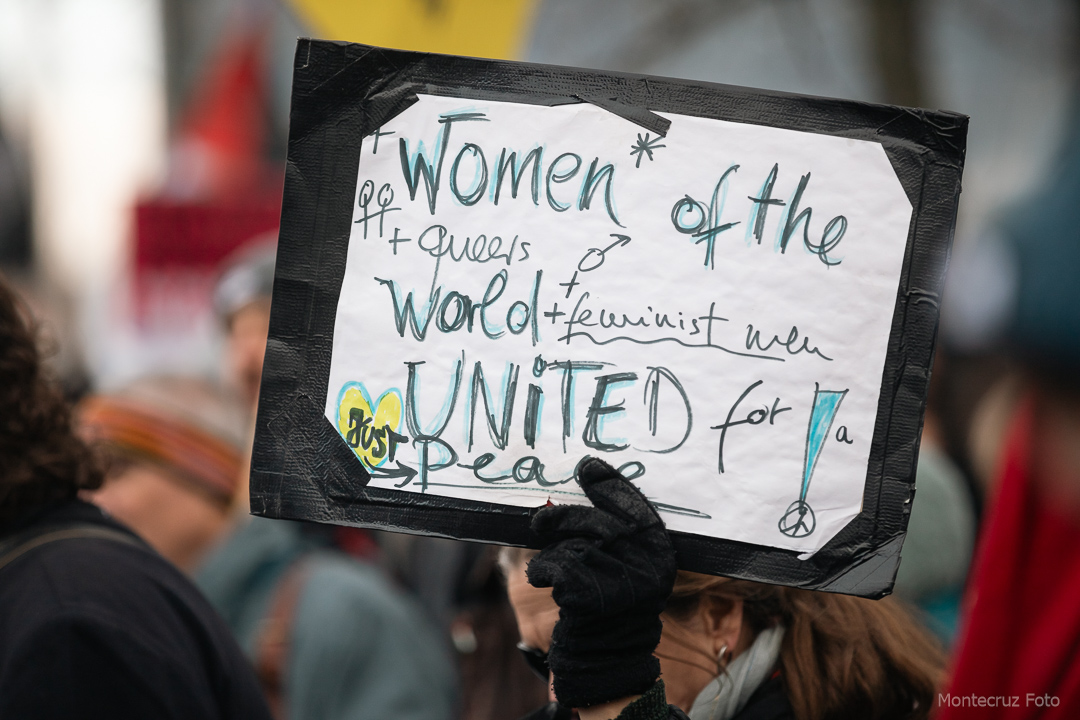 + Women* of the
+ queers
World + feminist men
UNiTED for a
JUST Peace
Montecruz Foto